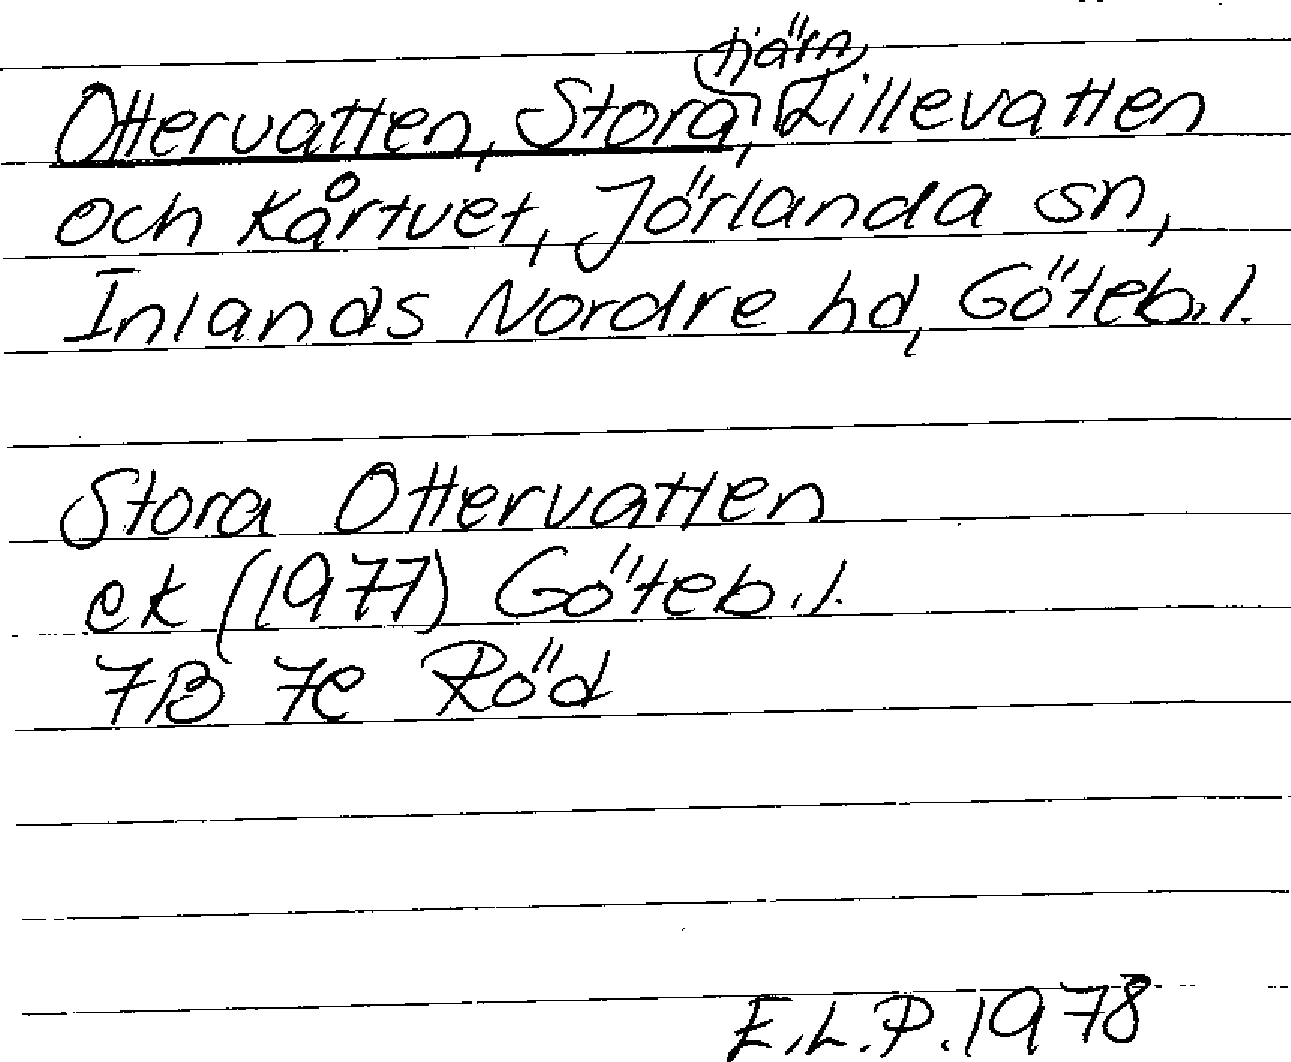 tjärn
Ottervatten, Stora, Lillevatten
och Kårtvet, Jörlanda sn,
Inlands Nordre hd, Göteb.l.
Stora Ottervatten
ek (1977) Göteb.l.
7B 7e Röd
E.L.P. 1978